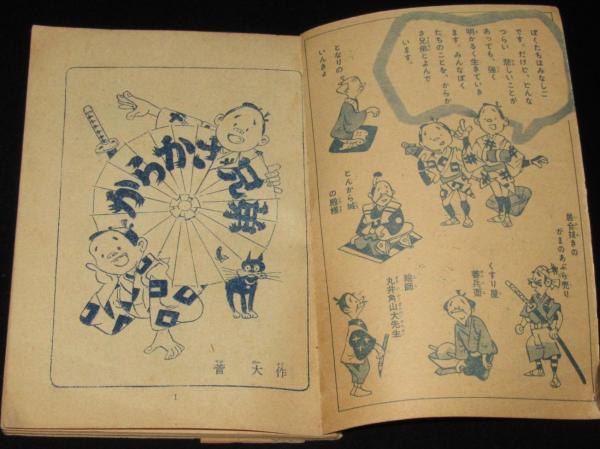 ぼくたちはみなしご
です。だけど、どんな
つらい悲しいことが
あっても、強く
明かるく生きていき
ます。みんなぼく
たちのことを、からか
さ兄弟とよんで
います。
となりの
いんきょ
とんから城
の殿様
居合抜きの
がまのあぶら売り
くすり屋
善兵衛
絵師
丸井角山大先生
からかさ
兄弟
菅大作
1